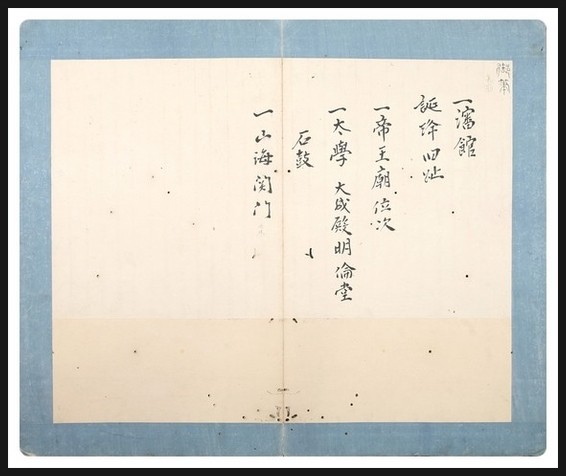 御筆
一瀋館
誕降旧址
一帝王廟位次
一太學 大成殿明倫堂
石鼓
一山海関门